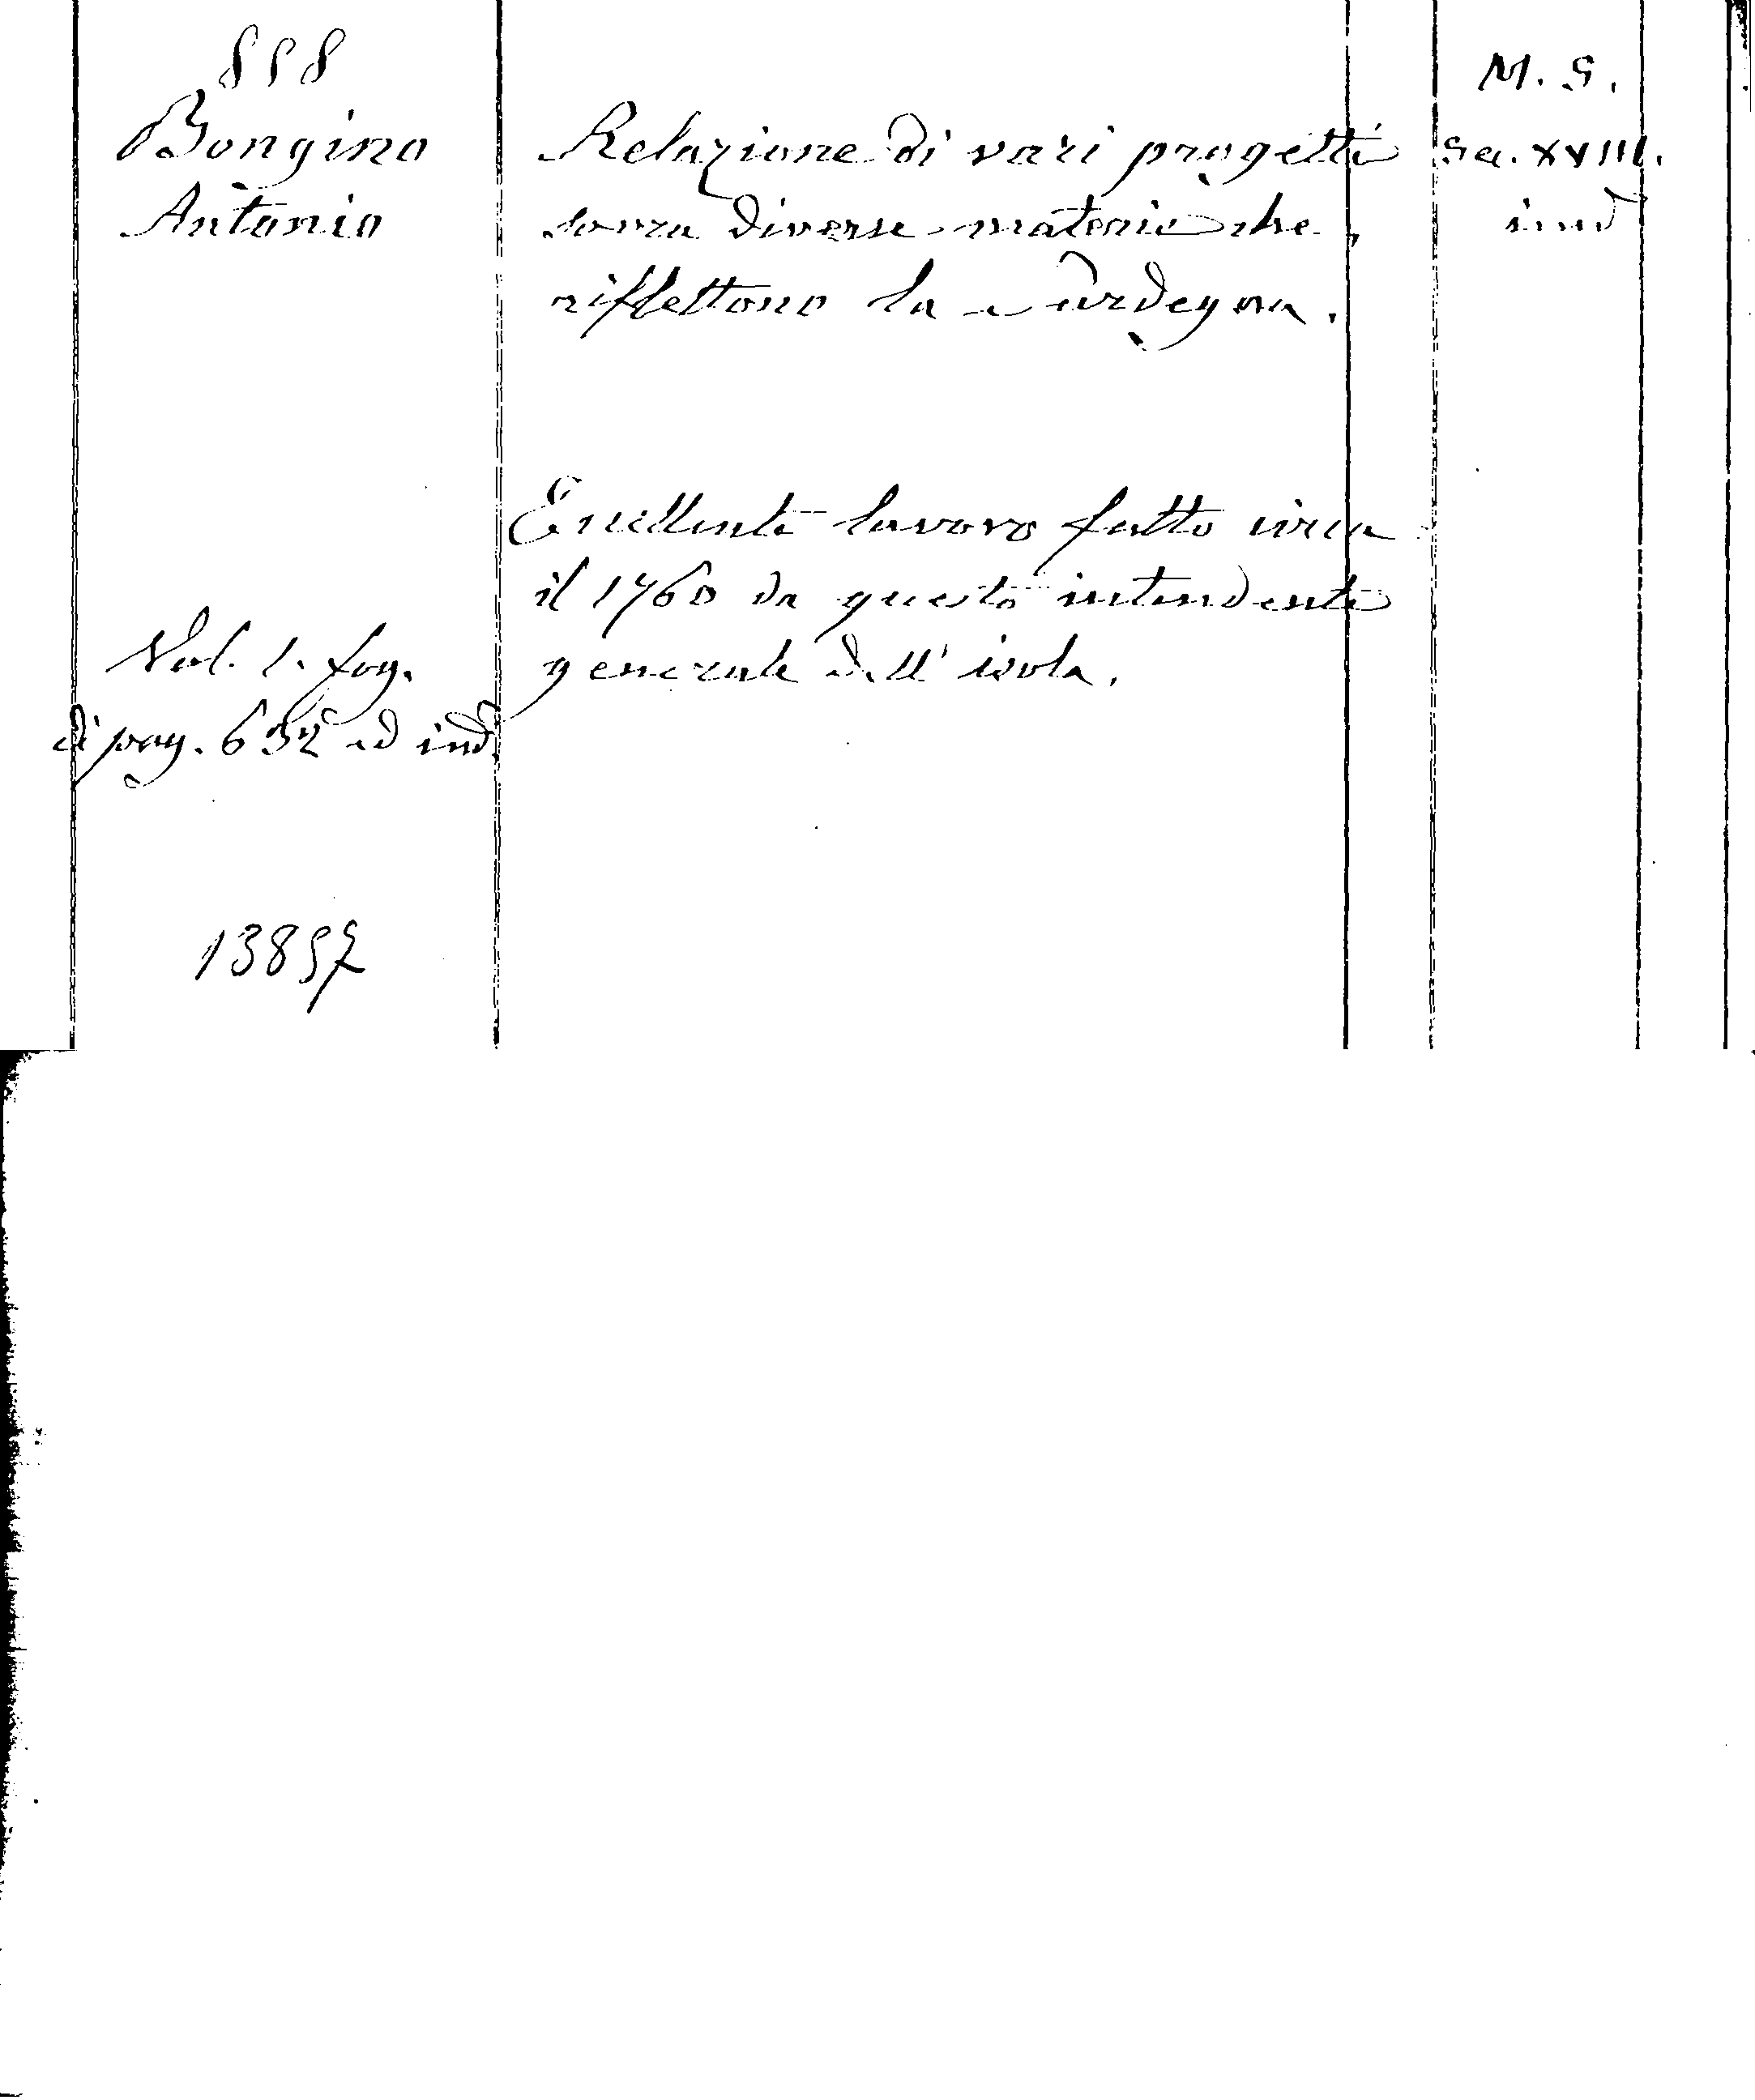 858
Bongino
Antonio
Relazione di vari progetti
sovra diverse materie che
riflettono la Sardegna.
M. S.
Sec. XVIII.
ind
Eccellente lavoro fatto circa
il 1760 da questo intendente
generale dell' isola.
Vol. 1. fog.
di pag. 632 ed ind.
13857